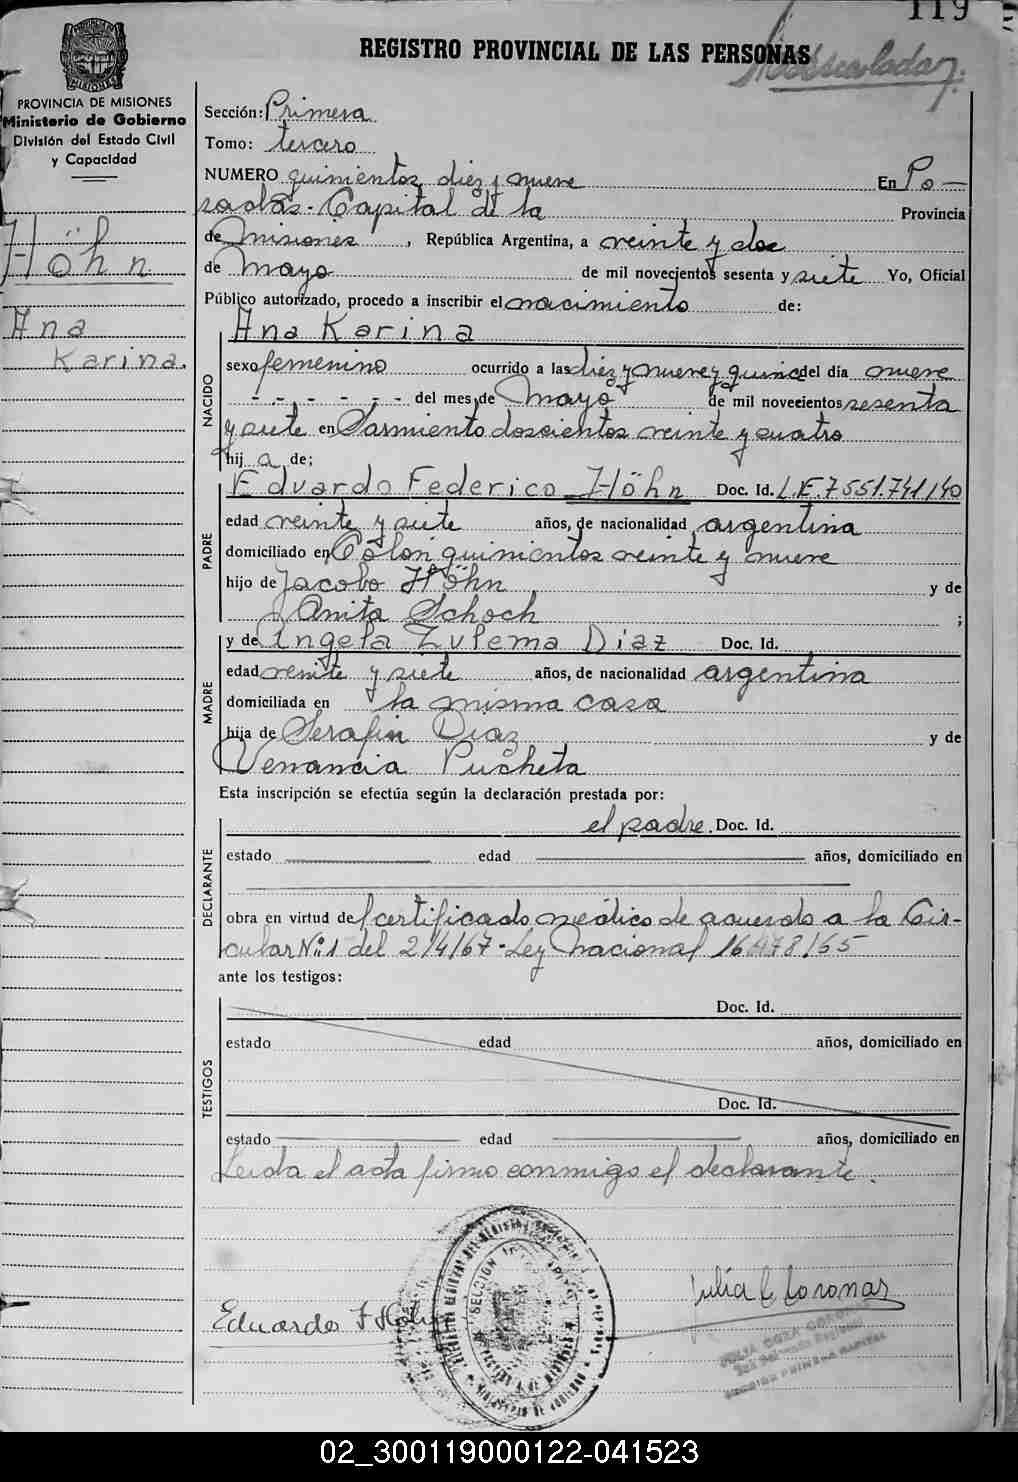 119
REGISTRO PROVINCIAL DE LAS PERSONAS
PROVINCIA DE MISIONES
Ministerio de Gobierno
División del Estado Civil
y Capacidad
Höhn
Ana
Karina.
Sección: Primera
Tomo: tercero
NUMERO quinientos diez y nueve En Po-
sadas-Capital de la Provincia
de Misiones, República Argentina, a veinte y dos
de Mayo de mil novecientos sesenta y siete Yo, Oficial
Público autorizado, procedo a inscribir el nacimiento de:
Ana Karina
NACIDO
sexo femenino ocurrido a las diez y nueve y quince del día nueve
- - - - - - del mes de Mayo de mil novecientos sesenta
y siete en Sarmiento doscientos veinte y cuatro
hij a de;
PADRE
Eduardo Federico Höhn Doc. Id. L.E. 7551.741/40
edad veinte y siete años, de nacionalidad argentina
domiciliado en Colón quinientos veinte y nueve
hijo de Jacobo Höhn y de
Anita Schoch ;
MADRE
y de Angela Zulema Diaz Doc. Id.
edad veinte y siete años, de nacionalidad argentina
domiciliada en la misma casa
hija de Serafin Diaz y de
Venancia Pucheta
Esta inscripción se efectúa según la declaración prestada por:
DECLARANTE
el padre. Doc. Id.
estado edad años, domiciliado en
obra en virtud del certificado médico de acuerdo a la Cir-
cular Nº 1 del 2/4/67-Ley Nacional 16478/65
ante los testigos:
TESTIGOS
Doc. Id.
estado edad años, domiciliado en
Doc. Id.
estado edad años, domiciliado en
Leida el acta firmo conmigo el declarante.
Eduardo F Höhn
Julia C Coronas
02_300119000122-041523